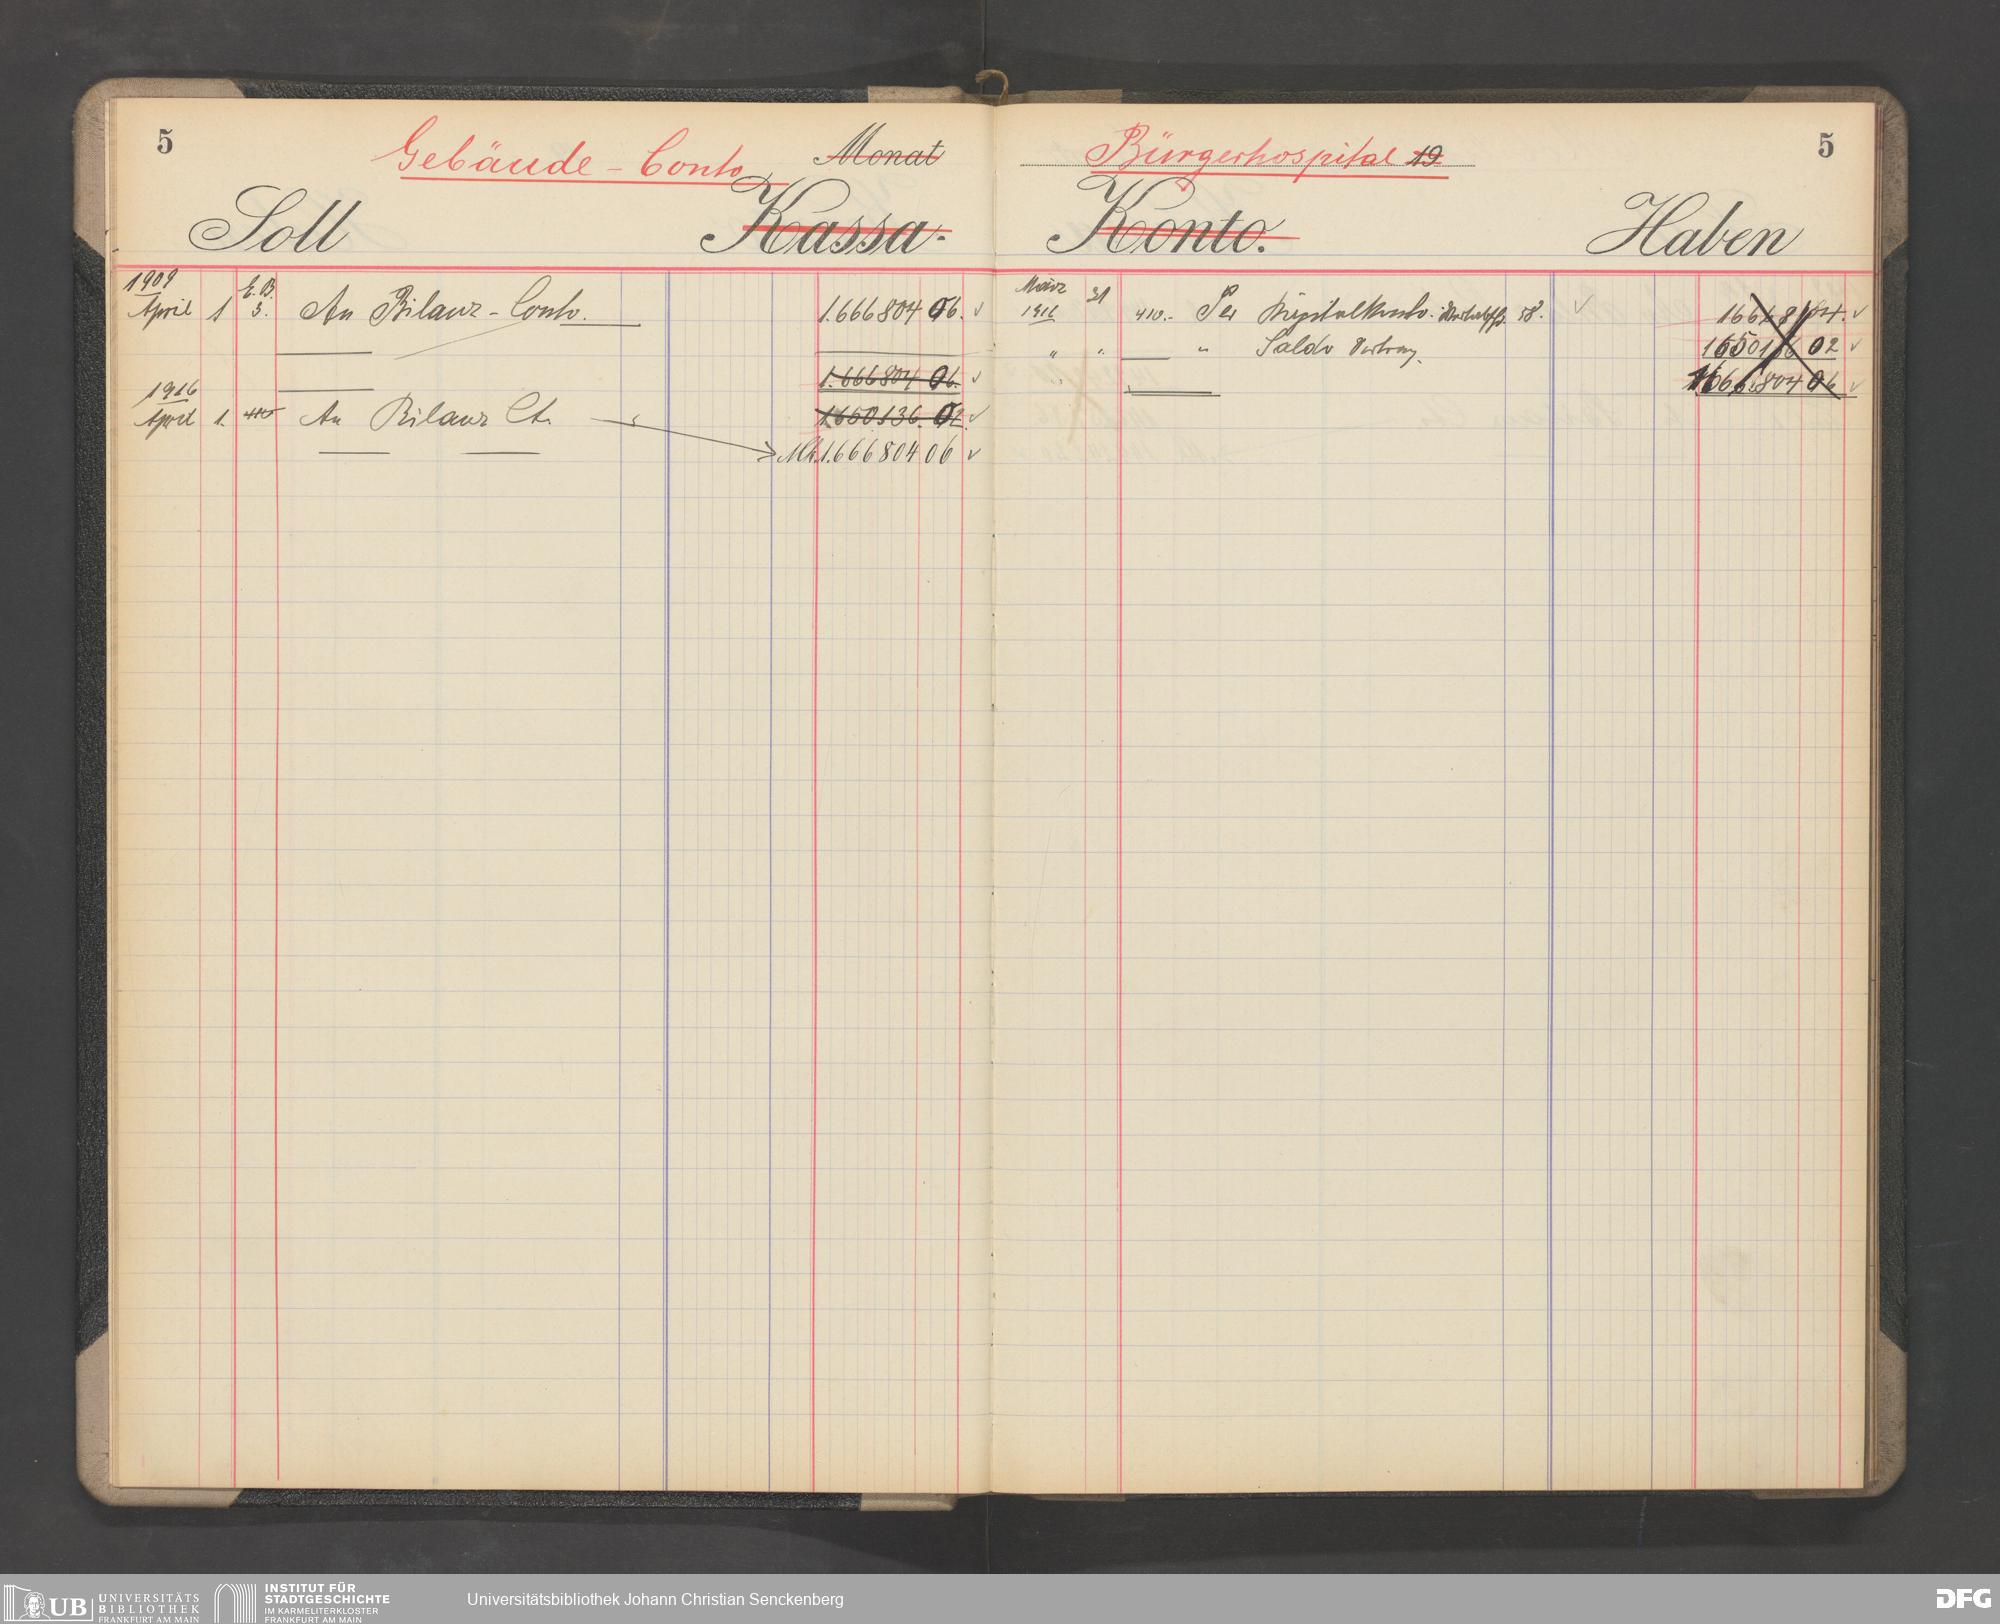 5
Gebäude - Conto Monat
Soll Kassa.
1909 E. B.
April 1 3. An Bilanz - Conto. 1.666804 06.
1.666804 06.
1916
April 1. 410 An Bilanz Cto. 1.650.136.02.
Mk. 1.666804 06
Bürgerhospital 19 5
Konto. Haben
März 31
1916 410.- Per Kapitalkonto. 58. 16668 04.
" " " Saldo Vortrag. 1650136 02
1666.804 06
UB UNIVERSITÄTS
BIBLIOTHEK
FRANKFURT AM MAIN
INSTITUT FÜR
STADTGESCHICHTE
IM KARMELITERKLOSTER
FRANKFURT AM MAIN
Universitätsbibliothek Johann Christian Senckenberg
DFG